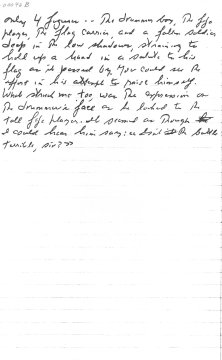 only 4 figures -- The drummer boy, The fife
player, The flag carrier, and a fallen soldier
deep in the low shadows, straining to
hold up a hand in a salute to his
flag as it passed by. You could see the
effort in his attempt to raise himself.
What struck me too, was the expression on
the drummer's face as he looked to the
tall fife player. It seemed as though
I could hear him saying: isn't the battle
terrible, sir?"